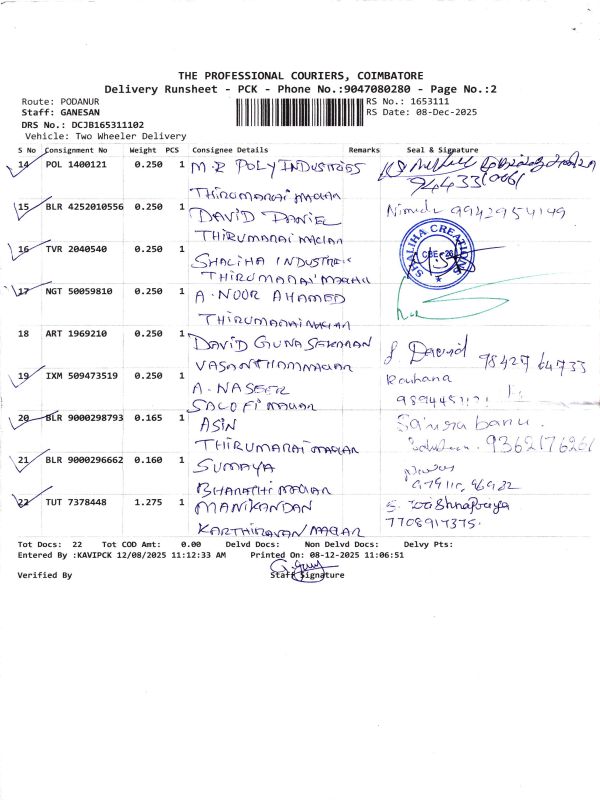 THE PROFESSIONAL COURIERS, COIMBATORE
Delivery Runsheet - PCK - Phone No.:9047080280 - Page No.:2
Route: PODANUR
RS No.: 1653111
Staff: GANESAN
RS Date: 08-Dec-2025
DRS No.: DCJB165311102
Vehicle: Two Wheeler Delivery
S No Consignment No Weight PCS Consignee Details Remarks Seal & Signature
14 POL 1400121 0.250 1 M.R POLY INDUSTRIES
9443310061
THIRUMARAI NAGAR
15 BLR 4252010556 0.250 1 DAVID DANIEL 9942954149
THIRUMARAI NAGAR
16 TVR 2040540 0.250 1 SHALIHA INDUSTRIES SHALIHA CREATIONS CBE - 26
THIRUMARAI NAGAR
17 NGT 50059810 0.250 1 A. NOOR AHAMED
THIRUMARAI NAGAR
18 ART 1969210 0.250 1 DAVID GUNASEKARAN J. David 98427 64733
VASANTHAM NAGAR
19 IXM 509473519 0.250 1 A. NASEER Rauhana
SALOFI NAGAR
20 BLR 9000298793 0.165 1 ASIN Saisra banu.
THIRUMARAI NAGAR 9362176261
21 BLR 9000296662 0.160 1 SUMAYA
BHARATHI NAGAR
22 TUT 7378448 1.275 1 MANIKANDAN
KARTHIKAVAN NAGAR 7708917375.
Tot Docs: 22 Tot COD Amt: 0.00 Delvd Docs: Non Delvd Docs: Delvy Pts:
Entered By :KAVIPCK 12/08/2025 11:12:33 AM Printed On: 08-12-2025 11:06:51
Verified By Staff Signature